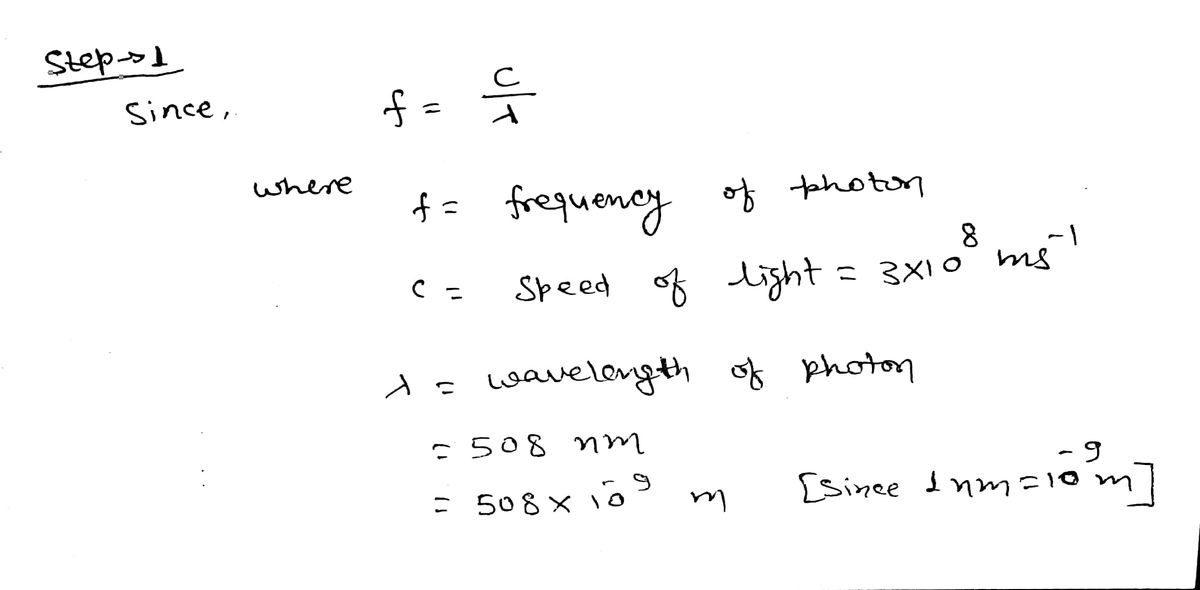 Step→1
Since, f = c/λ
where f = frequency of photon
c = speed of light = 3×10⁸ ms⁻¹
λ = wavelength of photon
= 508 nm
= 508 × 10⁻⁹ m [Since 1 nm = 10⁻⁹ m]